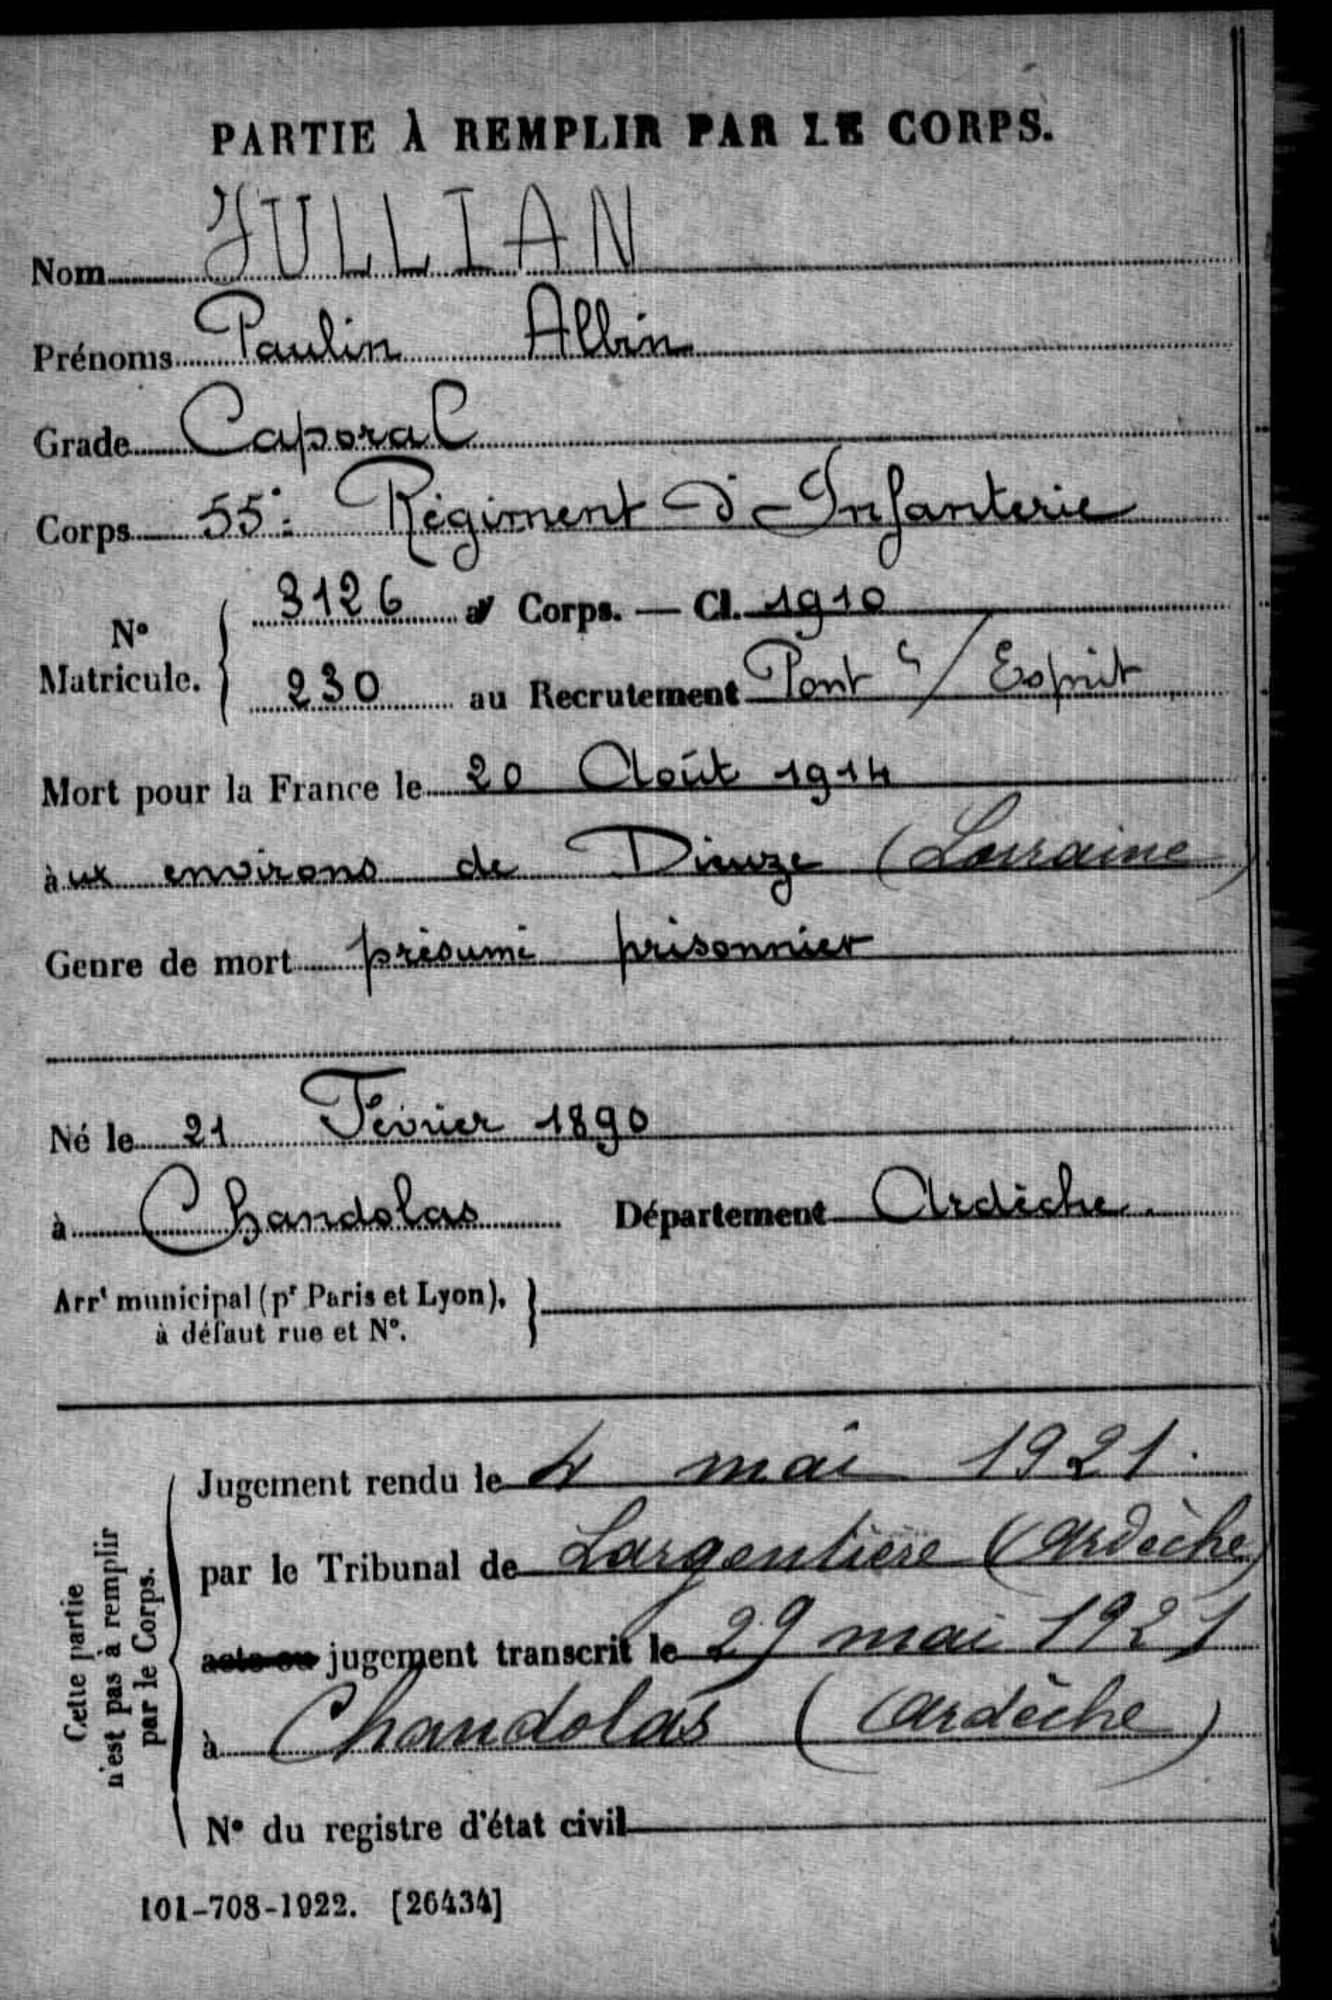 PARTIE À REMPLIR PAR LE CORPS.
Nom JULLIAN
Prénoms Paulin Albin
Grade Caporal
Corps 55e Régiment d'Infanterie
No Matricule. { 3126 au Corps. — Cl. 1910
230 au Recrutement Pont s/ Esprit
Mort pour la France le 20 Août 1914
aux environs de Dieuze (Lorraine)
Genre de mort présumé prisonnier
Né le 21 Février 1890
à Chandolas Département Ardèche.
Arrt municipal (pr Paris et Lyon), }
à défaut rue et No.
Cette partie
n'est pas à remplir
par le Corps.
Jugement rendu le 4 mai 1921.
par le Tribunal de Largentière (Ardèche)
acte ou jugement transcrit le 29 mai 1921
à Chandolas (Ardèche)
No du registre d'état civil
101-708-1922. [26434]